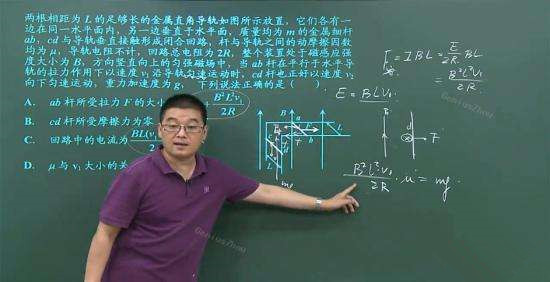 两根相距为 L 的足够长的金属直角导轨如图所示放置，它们各有一
边在同一水平面内，另一边垂直于水平面，质量均为 m 的金属细杆
ab、cd 与导轨垂直接触形成闭合回路，杆与导轨之间的动摩擦因数
均为 μ，导轨电阻不计，回路总电阻为 2R，整个装置处于磁感应强
度大小为 B，方向竖直向上的匀强磁场中，当 ab 杆在平行于水平导
轨的拉力作用下以速度 v₁ 沿导轨匀速运动时，cd 杆也正好以速度 v₂
向下匀速运动，重力加速度为 g，下列说法正确的是（
A. ab 杆所受拉力 F 的大小 B²L²v₁/2R
B. cd 杆所受摩擦力为零
C. 回路中的电流为 BL(v₁
D. μ 与 v₁ 大小的关
F安 = IBL = E/2R BL
= B²L²V₁/2R
E = BLV₁
F
B²L²V₁/2R · μ = mg
B
a
F
b
L
mg
GeniusZhou